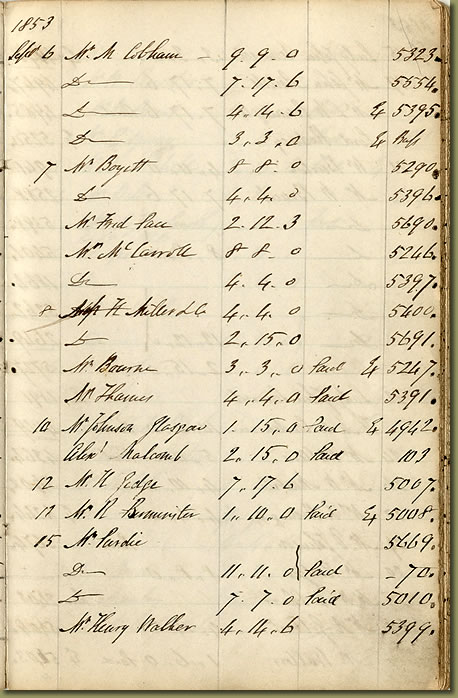 1853
Sept 6 Mr M Cobham - 9. 9. 0 5323.
Do 7. 17. 6 5554.
Do 4. 14. 6 & 5395.
Do 3. 3. 0 &
7 Mr Boyett 8 8. 0 5290.
Do 4. 4. 0 5396.
Mr Fred Pace 2. 12. 3 5690.
Mrs McCarroll 8 8. 0 5246.
Do 4. 4. 0 5397.
8 H Miller & Co 4. 4. 0 5400.
Do 2. 15. 0 5691.
Mr Bourne 3. 3. 0 Paid & 5247.
Mr Thaines 4. 4. 0 Paid 5391.
10 Mr Johnson Glasgow 1. 15. 0 Paid & 4942.
Alexr Malcomb 2. 15. 0 Paid 103
12 Mr H Gidge 7. 17. 6 5007.
12 Mr R 1. 10. 0 Paid & 5008.
15 Mr Purdie 5669.
Do 11. 11. 0 } Paid - 70.
Do 7. 7. 0 Paid 5010.
Mr Henry Walker 4. 14. 6 5399.